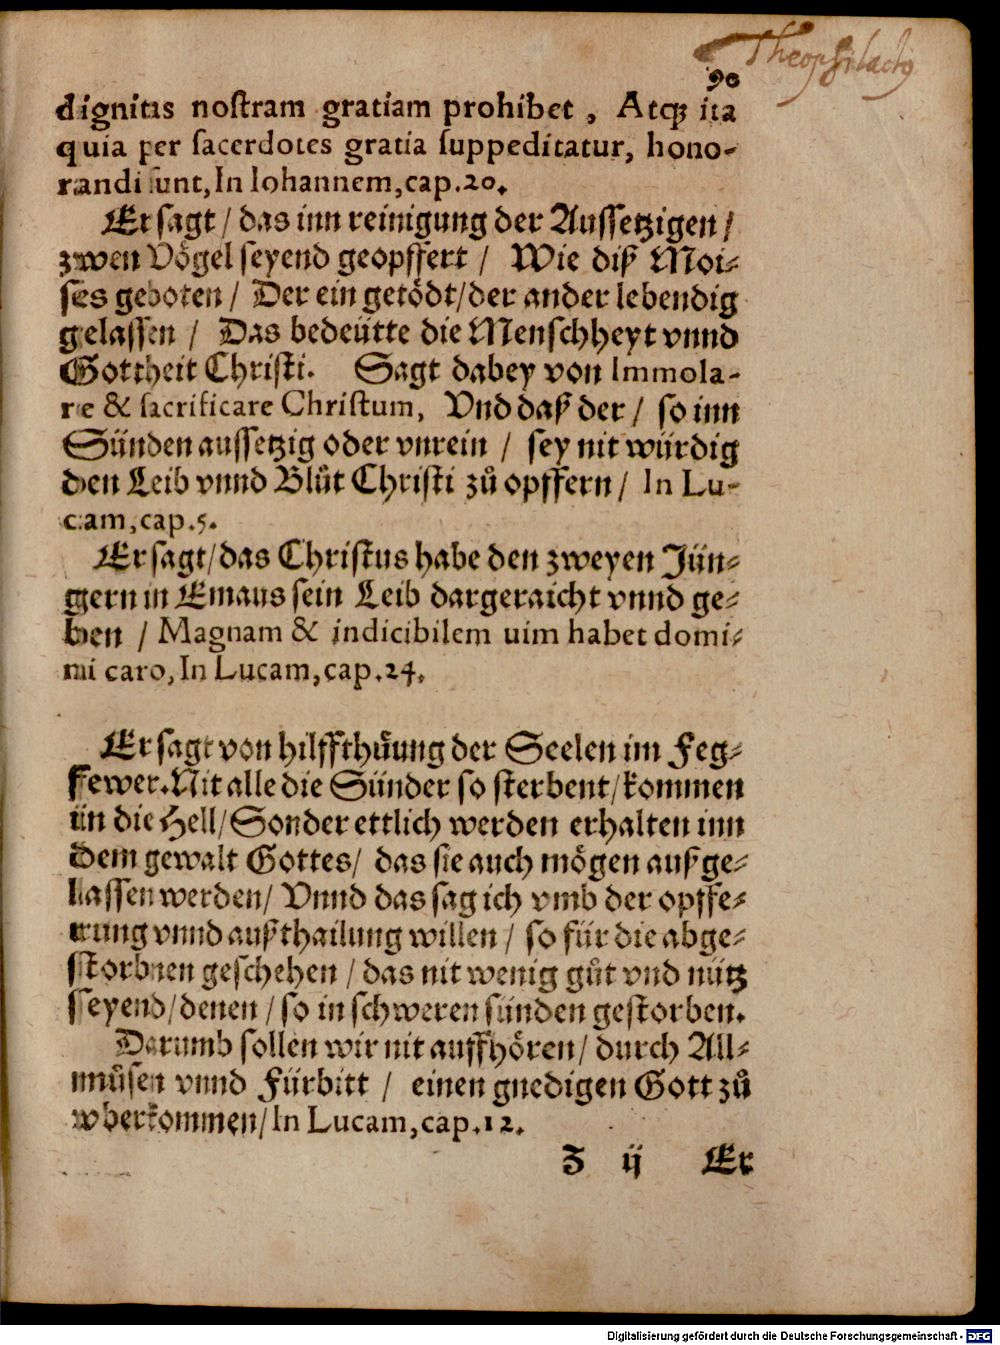 Theophilactus
90
dignitas nostram gratiam prohibet, Atqꝫ ita
quia per sacerdotes gratia suppeditatur, hono-
randi sunt, In Iohannem, cap. 20.
Er sagt / das inn reinigung der Aussetzigen /
zwen Vögel seyend geopffert / Wie diß Moi-
ses geboten / Der ein getödt / der ander lebendig
gelassen / Das bedeütte die Menschheyt vnnd
Gottheit Christi. Sagt dabey von Immola-
re & sacrificare Christum, Vnd daß der / so inn
Sünden aussetzig oder vnrein / sey nit würdig
den Leib vnnd Blůt Christi zů opffern / In Lu-
cam, cap. 5.
Er sagt / das Christus habe den zweyen Jün-
gern in Emaus sein Leib dargeraicht vnnd ge-
ben / Magnam & indicibilem uim habet domi-
ni caro, In Lucam, cap. 24.
Er sagt von hilffthůung der Seelen im Feg-
fewer. Nit alle die Sünder so sterbent / kommen
in die Hell / Sonder ettlich werden erhalten inn
dem gewalt Gottes / das sie auch mögen außge-
lassen werden / Vnnd das sag ich vmb der opffe-
rung vnnd außthailung willen / so für die abge-
storbnen geschehen / das nit wenig gůt vnd nütz
seyend / denen / so in schweren sünden gestorben.
Darumb sollen wir nit auffhören / durch All-
můsen vnnd Fürbitt / einen gnedigen Gott zů
vberkommen / In Lucam, cap. 12.
Z ij Er
Digitalisierung gefördert durch die Deutsche Forschungsgemeinschaft - DFG